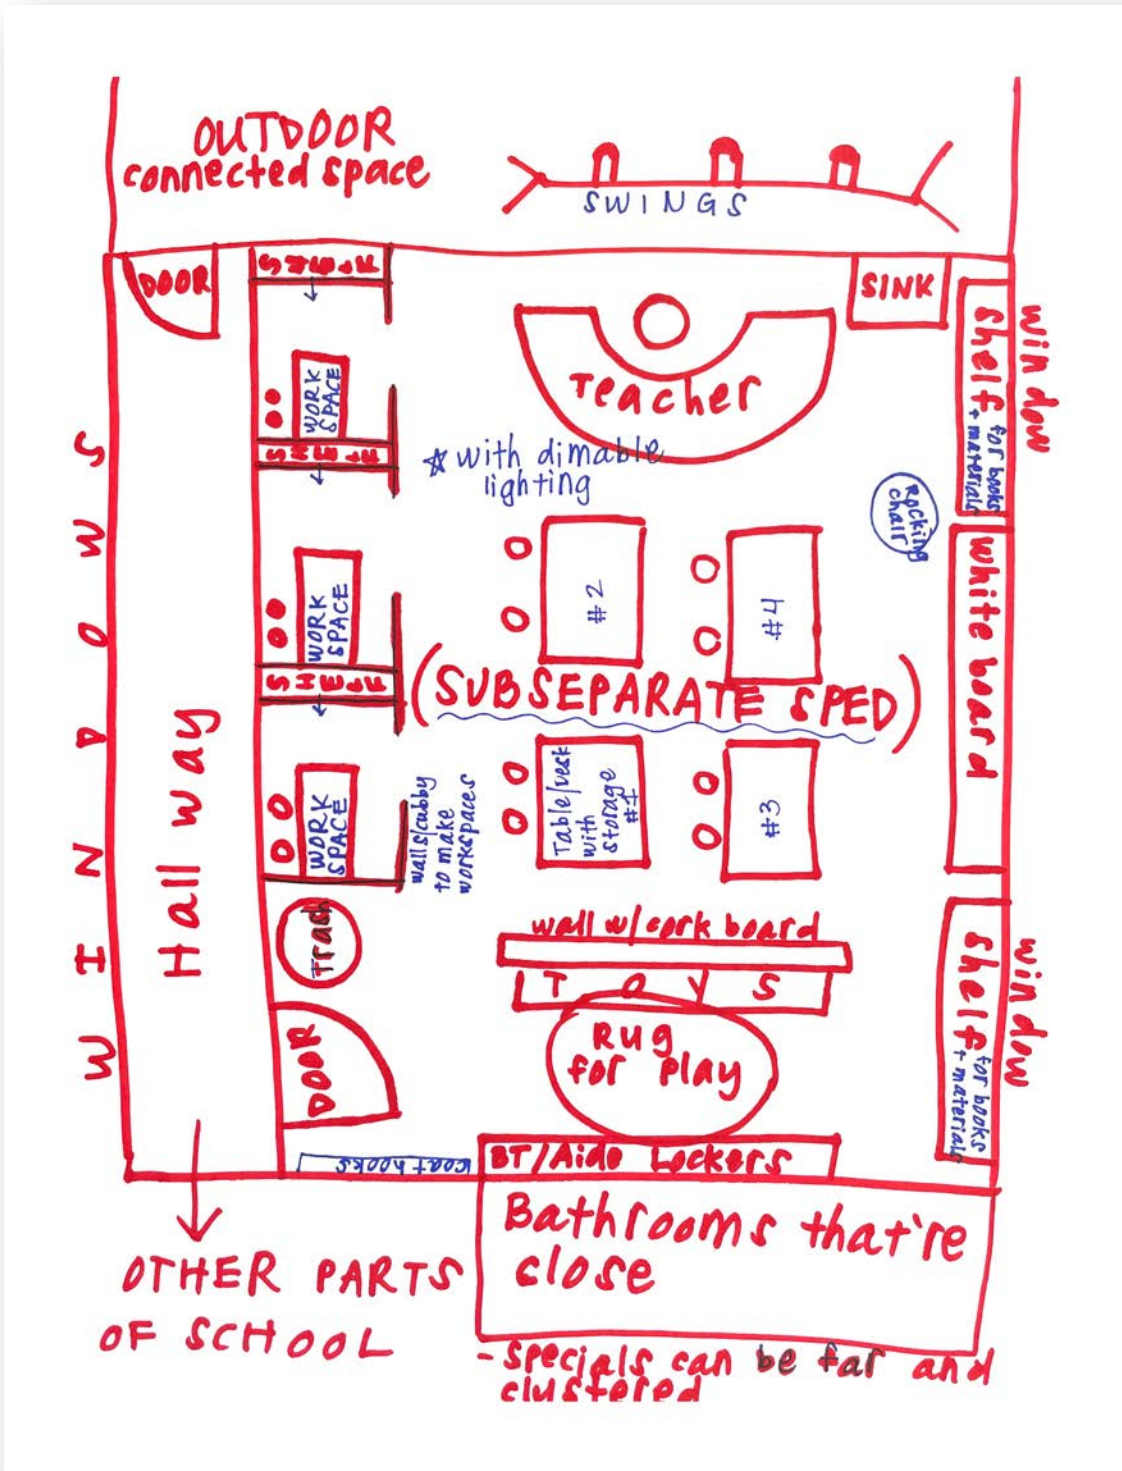 OUTDOOR
connected space
SWINGS
DOOR
SHELF
SINK
Teacher
shelf for books
+ materials
window
WORK
SPACE
SHELF
☆ with dimable
lighting
Rocking
chair
WINDOWS
Hall way
#2
#4
white board
WORK
SPACE
SHELF
(SUBSEPARATE SPED)
WORK
SPACE
walls/cubby
to make
workspaces
Table/desk
with
storage
#1
#3
Trash
wall w/ cork board
TOYS
Rug
for play
DOOR
shelf for books
+ materials
window
coat hooks
BT/Aide Lockers
Bathrooms that're
close
OTHER PARTS
OF SCHOOL
- specials can be far and
clustered